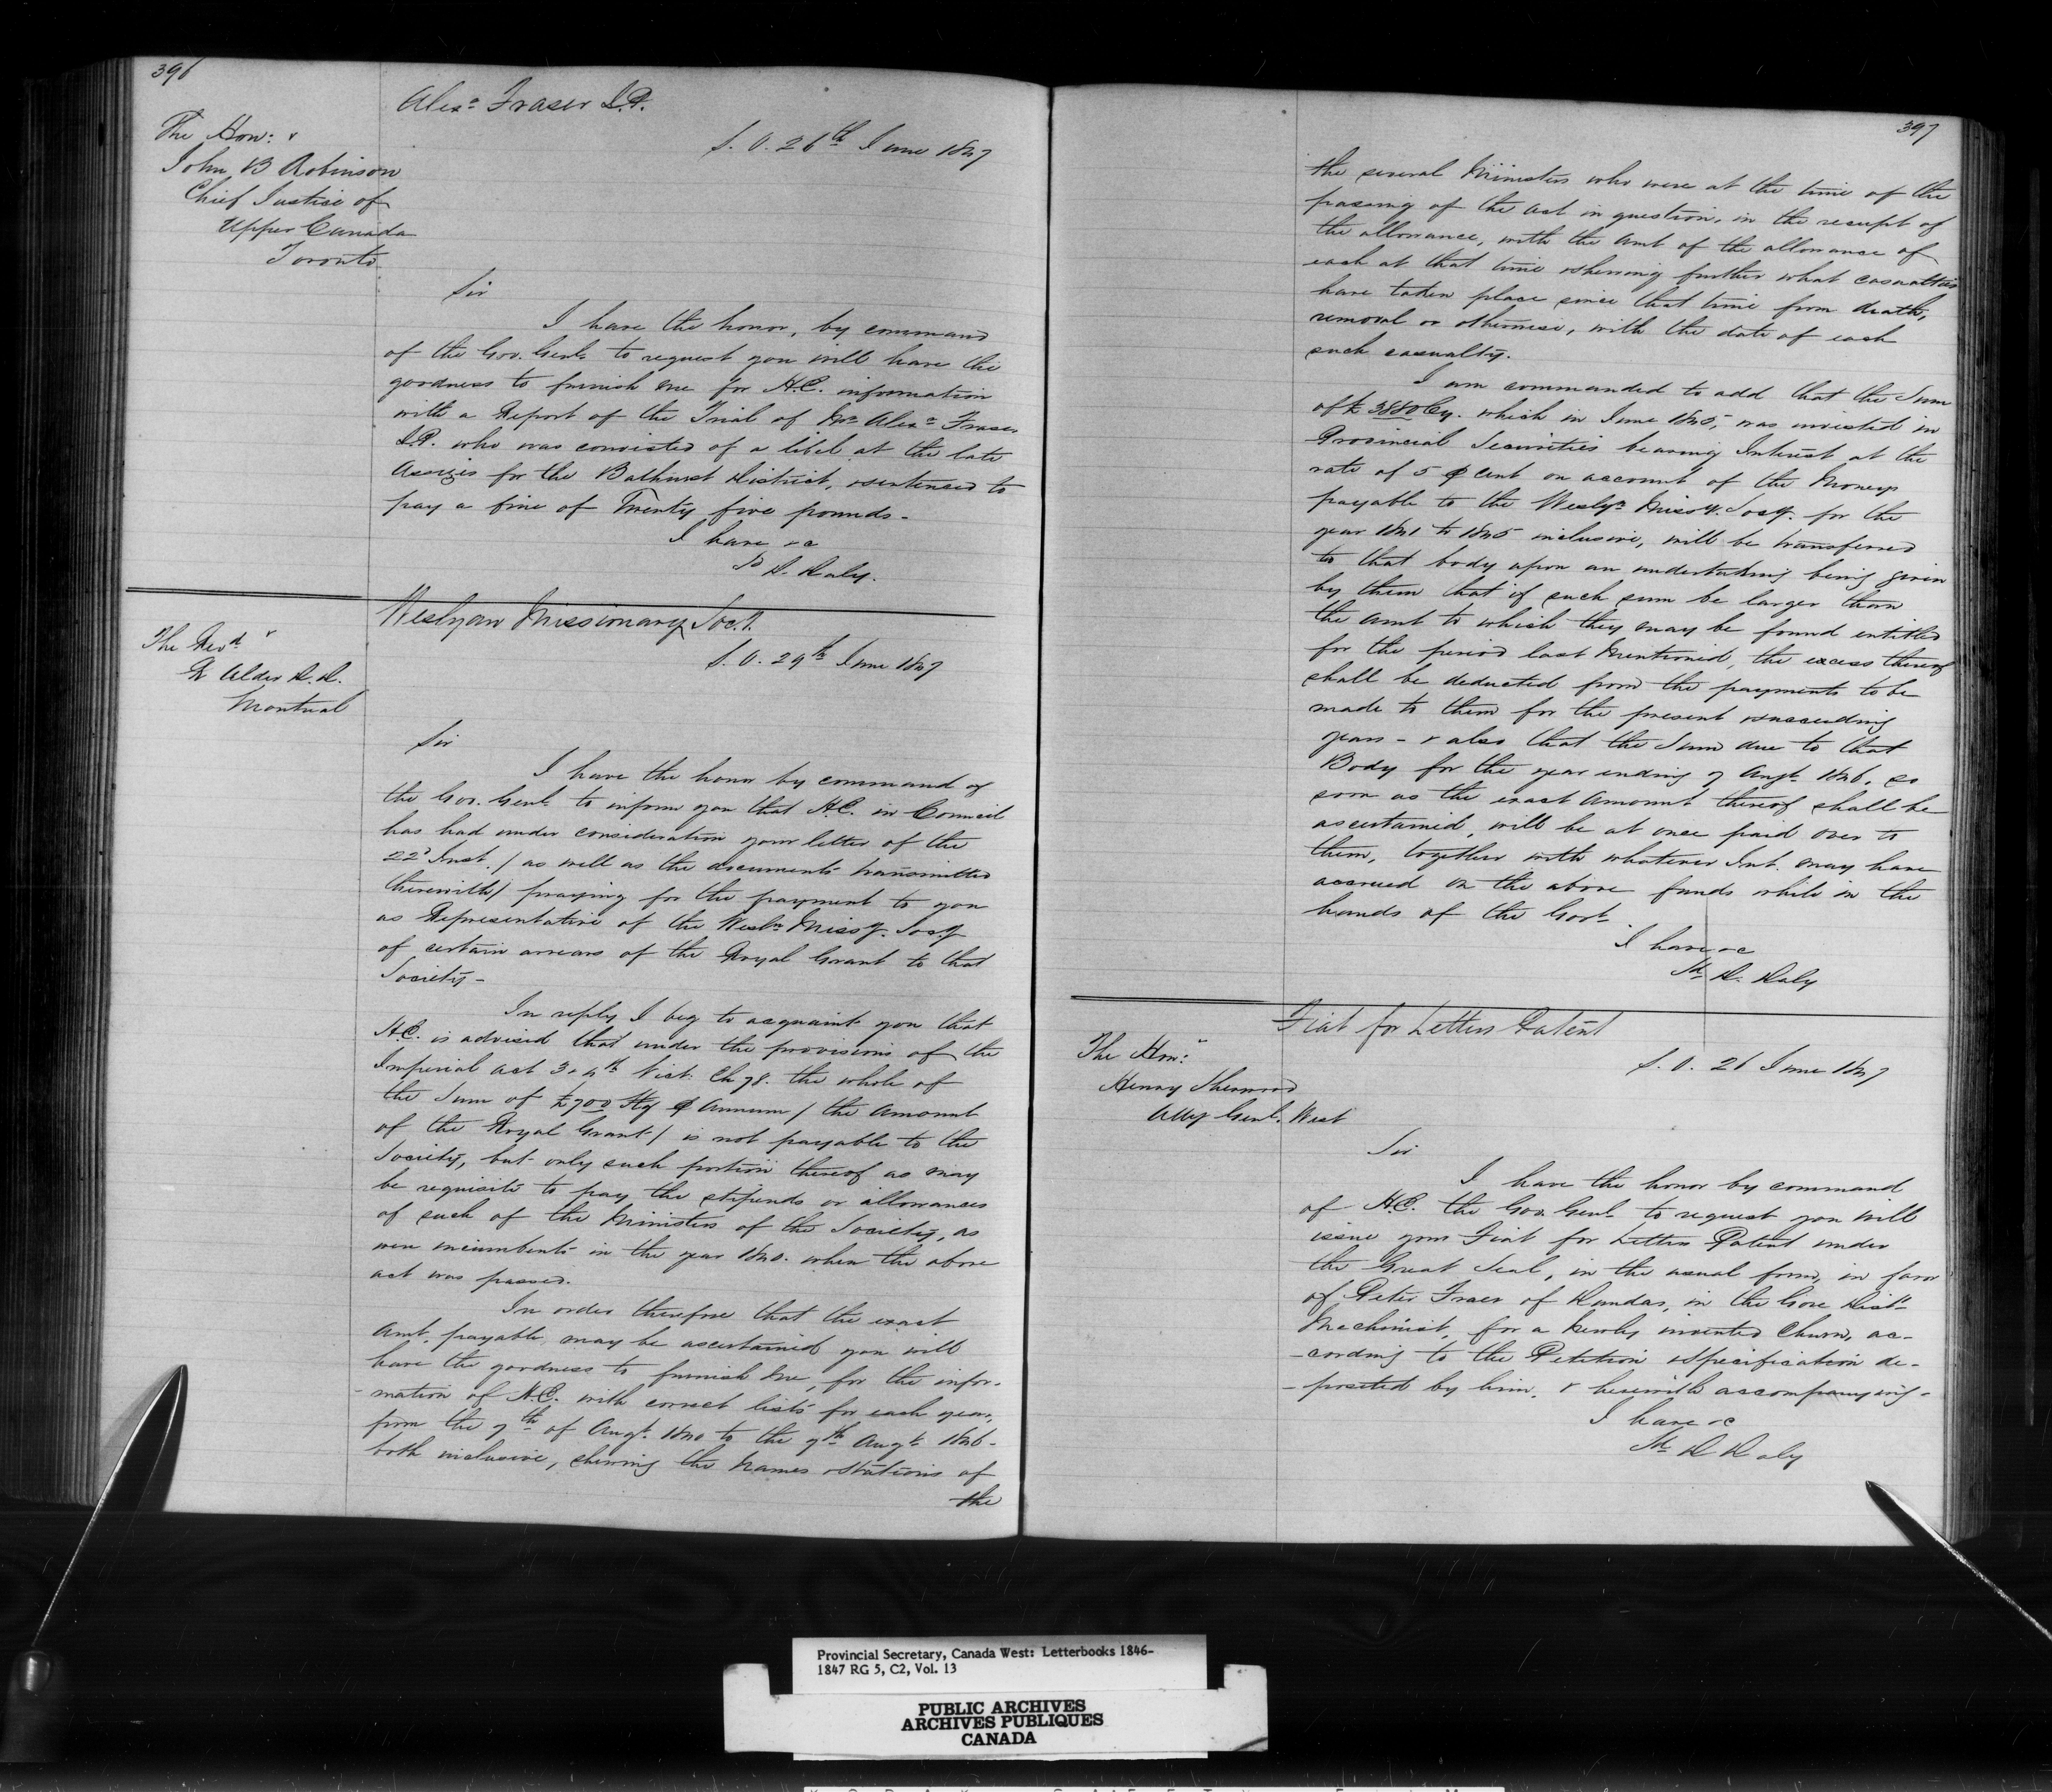 396
Alexr. Fraser J.P.
S.O. 26th June 1847
The Hon:
John B Robinson
Chief Justice of
Upper Canada
Toronto
Sir
I have the honor, by command
of the Gov. Genl. to request you will have the
goodness to furnish me for H.E. information
with a Report of the Trial of Mr. Alexr. Fraser
J.P. who was convicted of a libel at the late
Assizes for the Bathurst District, & sentenced to
pay a fine of Twenty five pounds -
I have &c
Sd D. Daly.
Weslyan Missionary Soct.
S.O. 29th June 1847
The Revd.
R Alder D.D.
Montreal
Sir
I have the honor by command of
the Gov. Genl. to inform you that H.E. in Council
has had under consideration your letter of the
22d Inst. / as well as the documents transmitted
therewith / praying for the payment to you
as Representative of the Wesln. Missy. Socy
of certain arrears of the Royal Grant to that
Society -
In reply I beg to acquaint you that
H.E. is advised that under the provisions of the
Imperial Act 3 & 4th Vict. Ch 78. the whole of
the Sum of £700 Stg ⅌ Annum / the amount
of the Royal Grant / is not payable to the
Society, but only such portion thereof as may
be requisite to pay the stipends or allowances
of such of the Ministers of the Society, as
were incumbents in the year 1840. when the above
act was passed.
In order therefore that the exact
Amt. payable may be ascertained you will
have the goodness to furnish me, for the infor-
-mation of H.E. with correct lists for each year,
from the 7th of Augt. 1840 to the 7th Augt. 1846 -
both inclusive, shewing the names & stations of
the
397
the several Ministers who were at the time of the
passing of the act in question, in the receipt of
the allowance, with the amt of the allowance of
each at that time & shewing further what casualties
have taken place since that time from death,
removal or otherwise, with the date of each
such casualty.
I am commanded to add that the Sum
of £3880 Cy. which in June 1845, was invested in
Provincial Securities bearing Interest at the
rate of 5 ⅌ cent on account of the Moneys
payable to the Weslyn. Missy. Socy. for the
year 1841 to 1845 inclusive, will be transferred
to that body upon an undertaking being given
by them that if such sum be larger than
the amt to which they may be found entitled
for the period last mentioned, the excess thereof
shall be deducted from the payments to be
made to them for the present & succeeding
years - & also that the Sum due to that
Body for the year ending 7 Augt. 1846, so
soon as the exact Amount thereof shall be
ascertained, will be at once paid over to
them, together with whatever Int. may have
accrued on the above funds while in the
hands of the Govt.
I have &c
Sd. D. Daly
Fiat for Letters Patent
S.O. 26 June 1847
The Hon:
Henry Sherwood
Atty Genl. West
Sir
I have the honor by command
of H.E. the Gov. Genl. to request you will
issue your Fiat for Letters Patent under
the Great Seal, in the usual form, in favor
of Peter Fraer of Dundas, in the Gore Dist.
Mechinist, for a newly invented Churn, ac-
-cording to the Petition & Specification de-
-posited by him. & herewith accompanying -
I have &c
Sd. D Daly
Provincial Secretary, Canada West: Letterbooks 1846-
1847 RG 5, C2, Vol. 13
PUBLIC ARCHIVES
ARCHIVES PUBLIQUES
CANADA